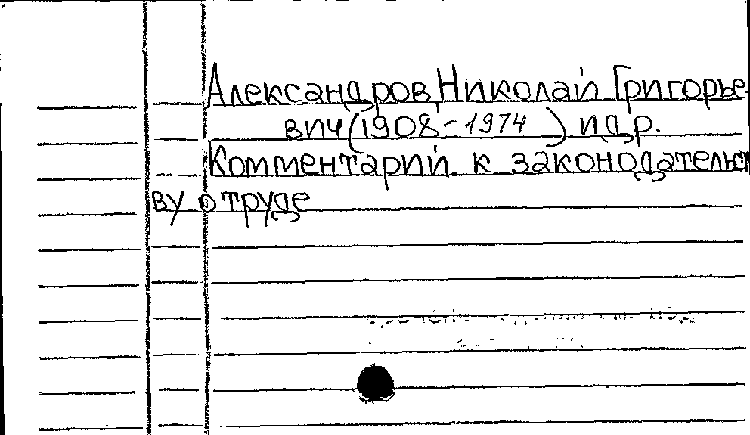 Александров, Николай Григорье-
вич (1908-1974) и др.
Комментарий к законодательст
ву о труде